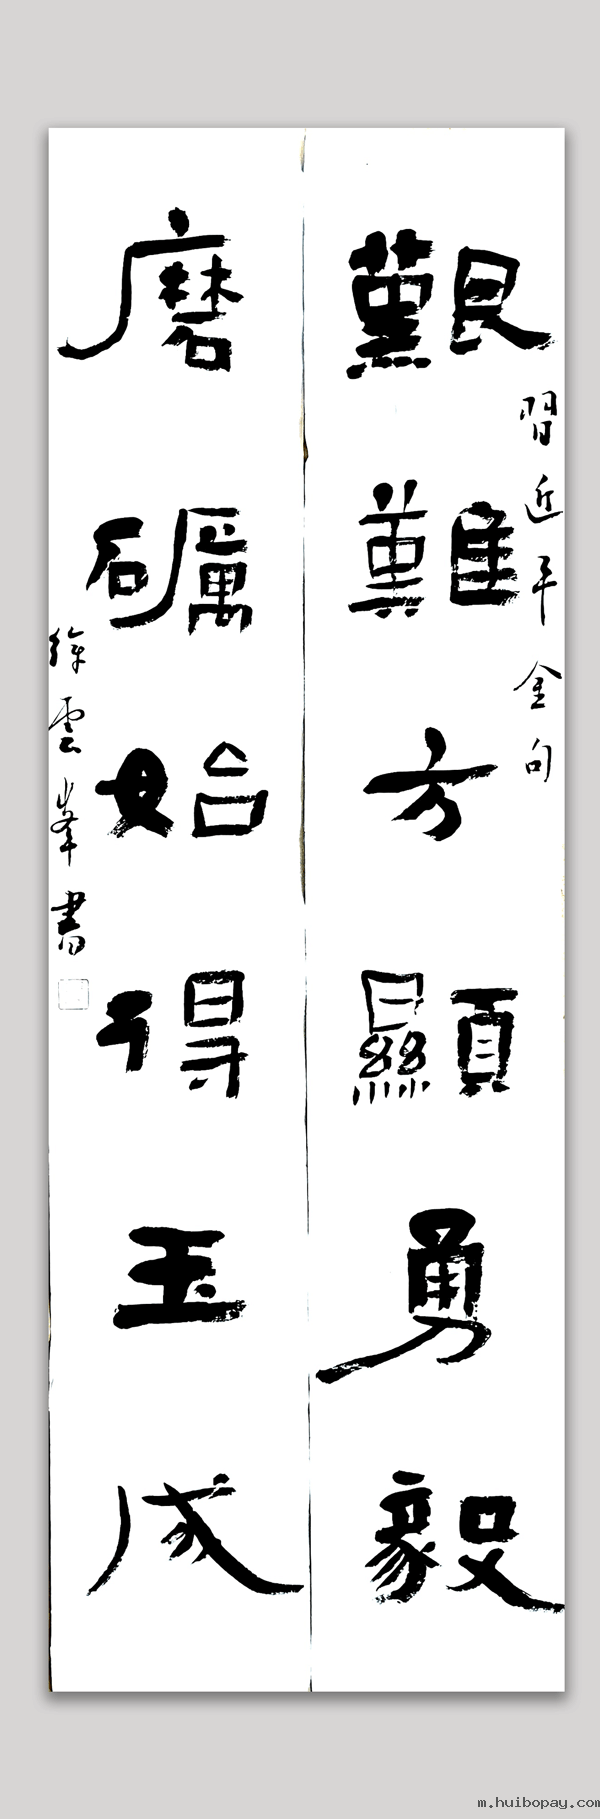 艱難方顯勇毅
習近平金句
磨礪始得玉成
徐雲峯書
m.huibopay.com